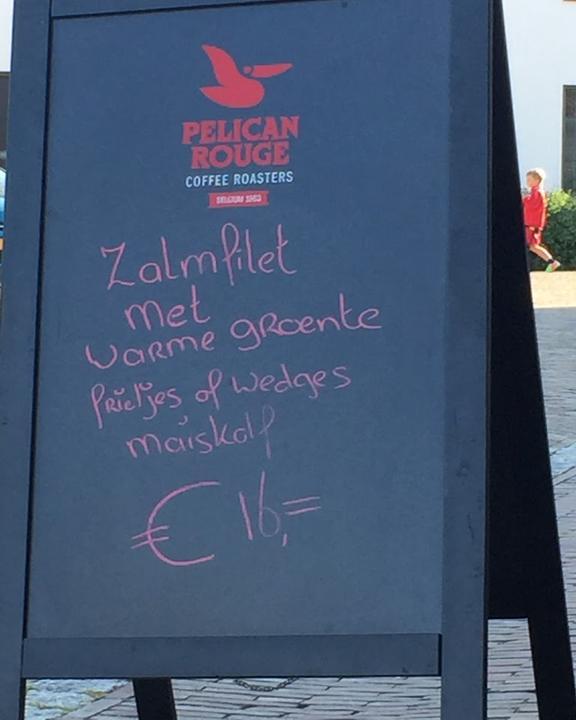 PELICAN
ROUGE
COFFEE ROASTERS
BELGIUM 1863
Zalmfilet
met
warme groente
frietjes of wedges
maiskolf
€ 16,=